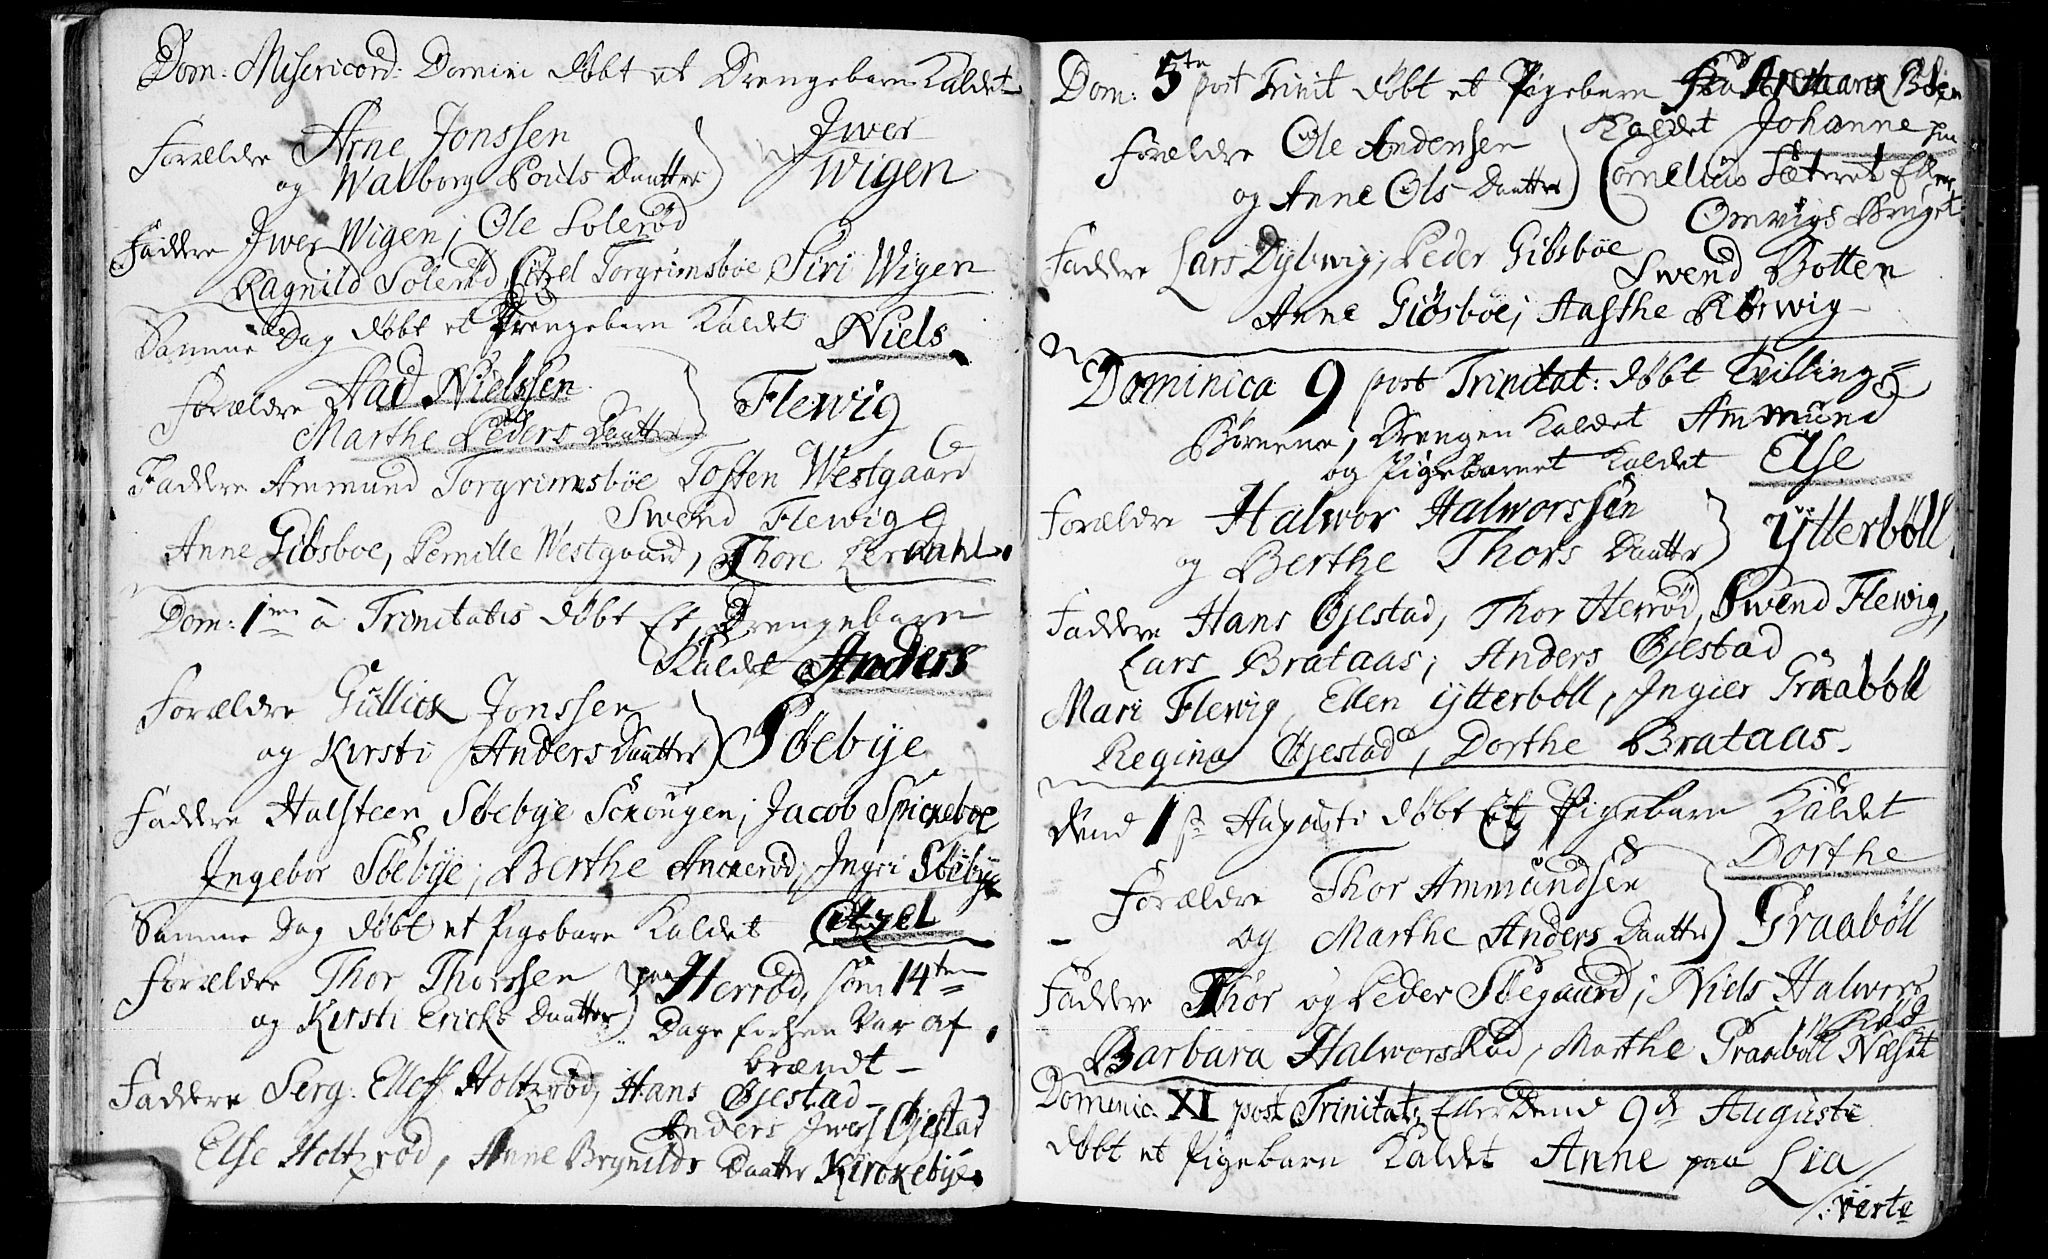 Dom: Misericord: Domini døbt et Drengebarn Kaldet
Forældre Arne Jonssen Jwer
og Walborg Pouls Daatter Wigen
Faddere Jwer Wigen; Ole Solerød
Ragnild Solerød, Citzel Torgrimsbøe Siri Wigen
Samme Dag døbt et Drengebarn Kaldet Niels
Forældre Aad Nielssen Flewig
Marthe Peders Daatter
Faddere Ammund Torgrimsbøe Tosten Westgaard
Swend Flewig
Anne Giøsboe, Pernille Westgaard, Thore
Dom: 1me à Trinitatis døbt Et Drengebarn
Kaldet Anders
Forældre Gullick Jonssen
og Kirsti Anders Daatter Søebÿe
Faddere Halsteen Søebye Schougen; Jacob Spickeboe
Ingebor Søebÿe; Berthe Anckerød; Jngri Søebÿe
Samme Dag døbt et Pigebarn Kaldet Citzel
Forældre Thor Thorssen paa Herrød, som 14ten
og Kirsti Ericks Daatter Dage forhen Var af
brændt
Faddere Serg: Elleff Holtzrød, Hans Øjestad
Anders Jwers Øjestad
Else Holtzrød, Anne Brynilds Daatter Kirckebÿe
Dom: 5te post Trinit døbt et Pigebarn
Kaldet Johanne paa
Forældre Ole Andensen
og Anne Ols Daatter Cornelius Sæteret Eller
Omvigs Bruget
Faddere Lars Dybwig; Peder Giøsbøe
Swend Botten
Anne Giøsbøe; Aasthe Rørwig
Dominica 9 post Trinitat: døbt Tvilling
Børnene, Drengen Kaldet Ammund
og Pigebarnet Kaldet Else
Forældre Halwor Halworssen
og Berthe Thors Daatter Ÿtterbøll
Faddere Hans Øjestad, Thor Herrød, Swend Flewig,
Lars Brataas; Anders Øjestad
Mari Flewig, Ellen Ÿtterbøll, Jngier Graabøll
Regina Øjestad, Dorthe Brataas
Dend 1st Augusti døbt Et Pigebarn Kaldet
Dorthe
Forældre Thor Ammundsen
og Marthe Anders Daatter Graabøll
Faddere Thor og Peder Søegaard; Niels Halwors
Barbara Halworsrød, Marthe Graabøll
Dominic. XI post Trinitat: Eller Dend 9de Augusti
døbt et Pigebarn Kaldet Anne paa Lia
verte